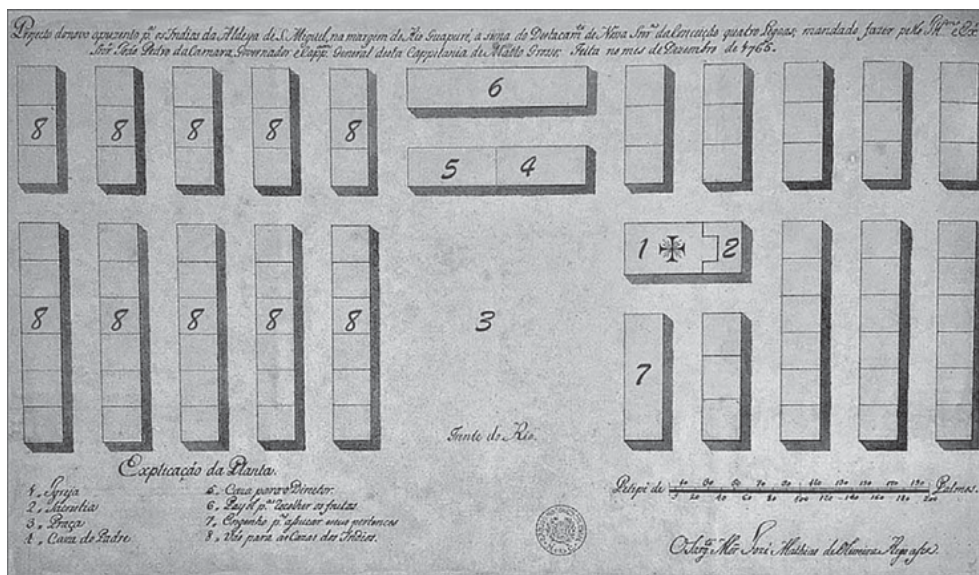 Projecto do novo apuzento p.ª os Indios da Aldeya de S. Miguel, na margem do Rio Guaporé, a sima do Destacam.to de Nova Snr.ª da Conceição quatro Legoas; mandado fazer pelo Ill.mo e Ex.mo
Snr. João Pedro da Camara, Governador e Capp.m General desta Cappitania de Matto Grosso; Feita no mes de Dezembro de 1765.
6
8 8 8 8 8
5 4
1 2
8 8 8 8 8
3
7
Frente do Rio.
Explicação da Planta.
1. Igreja
2. Sacristia
3. Praça
4. Caza do Padre
5. Caza para o Director.
6. Payól p.ª recolher os frutos
7. Engenho p.ª seus pertences
8. Vão para as Cazas dos Indios.
Petipé de Palmos.
O Sarg.to Mór José Mathias de Oliveira Rego a fez.